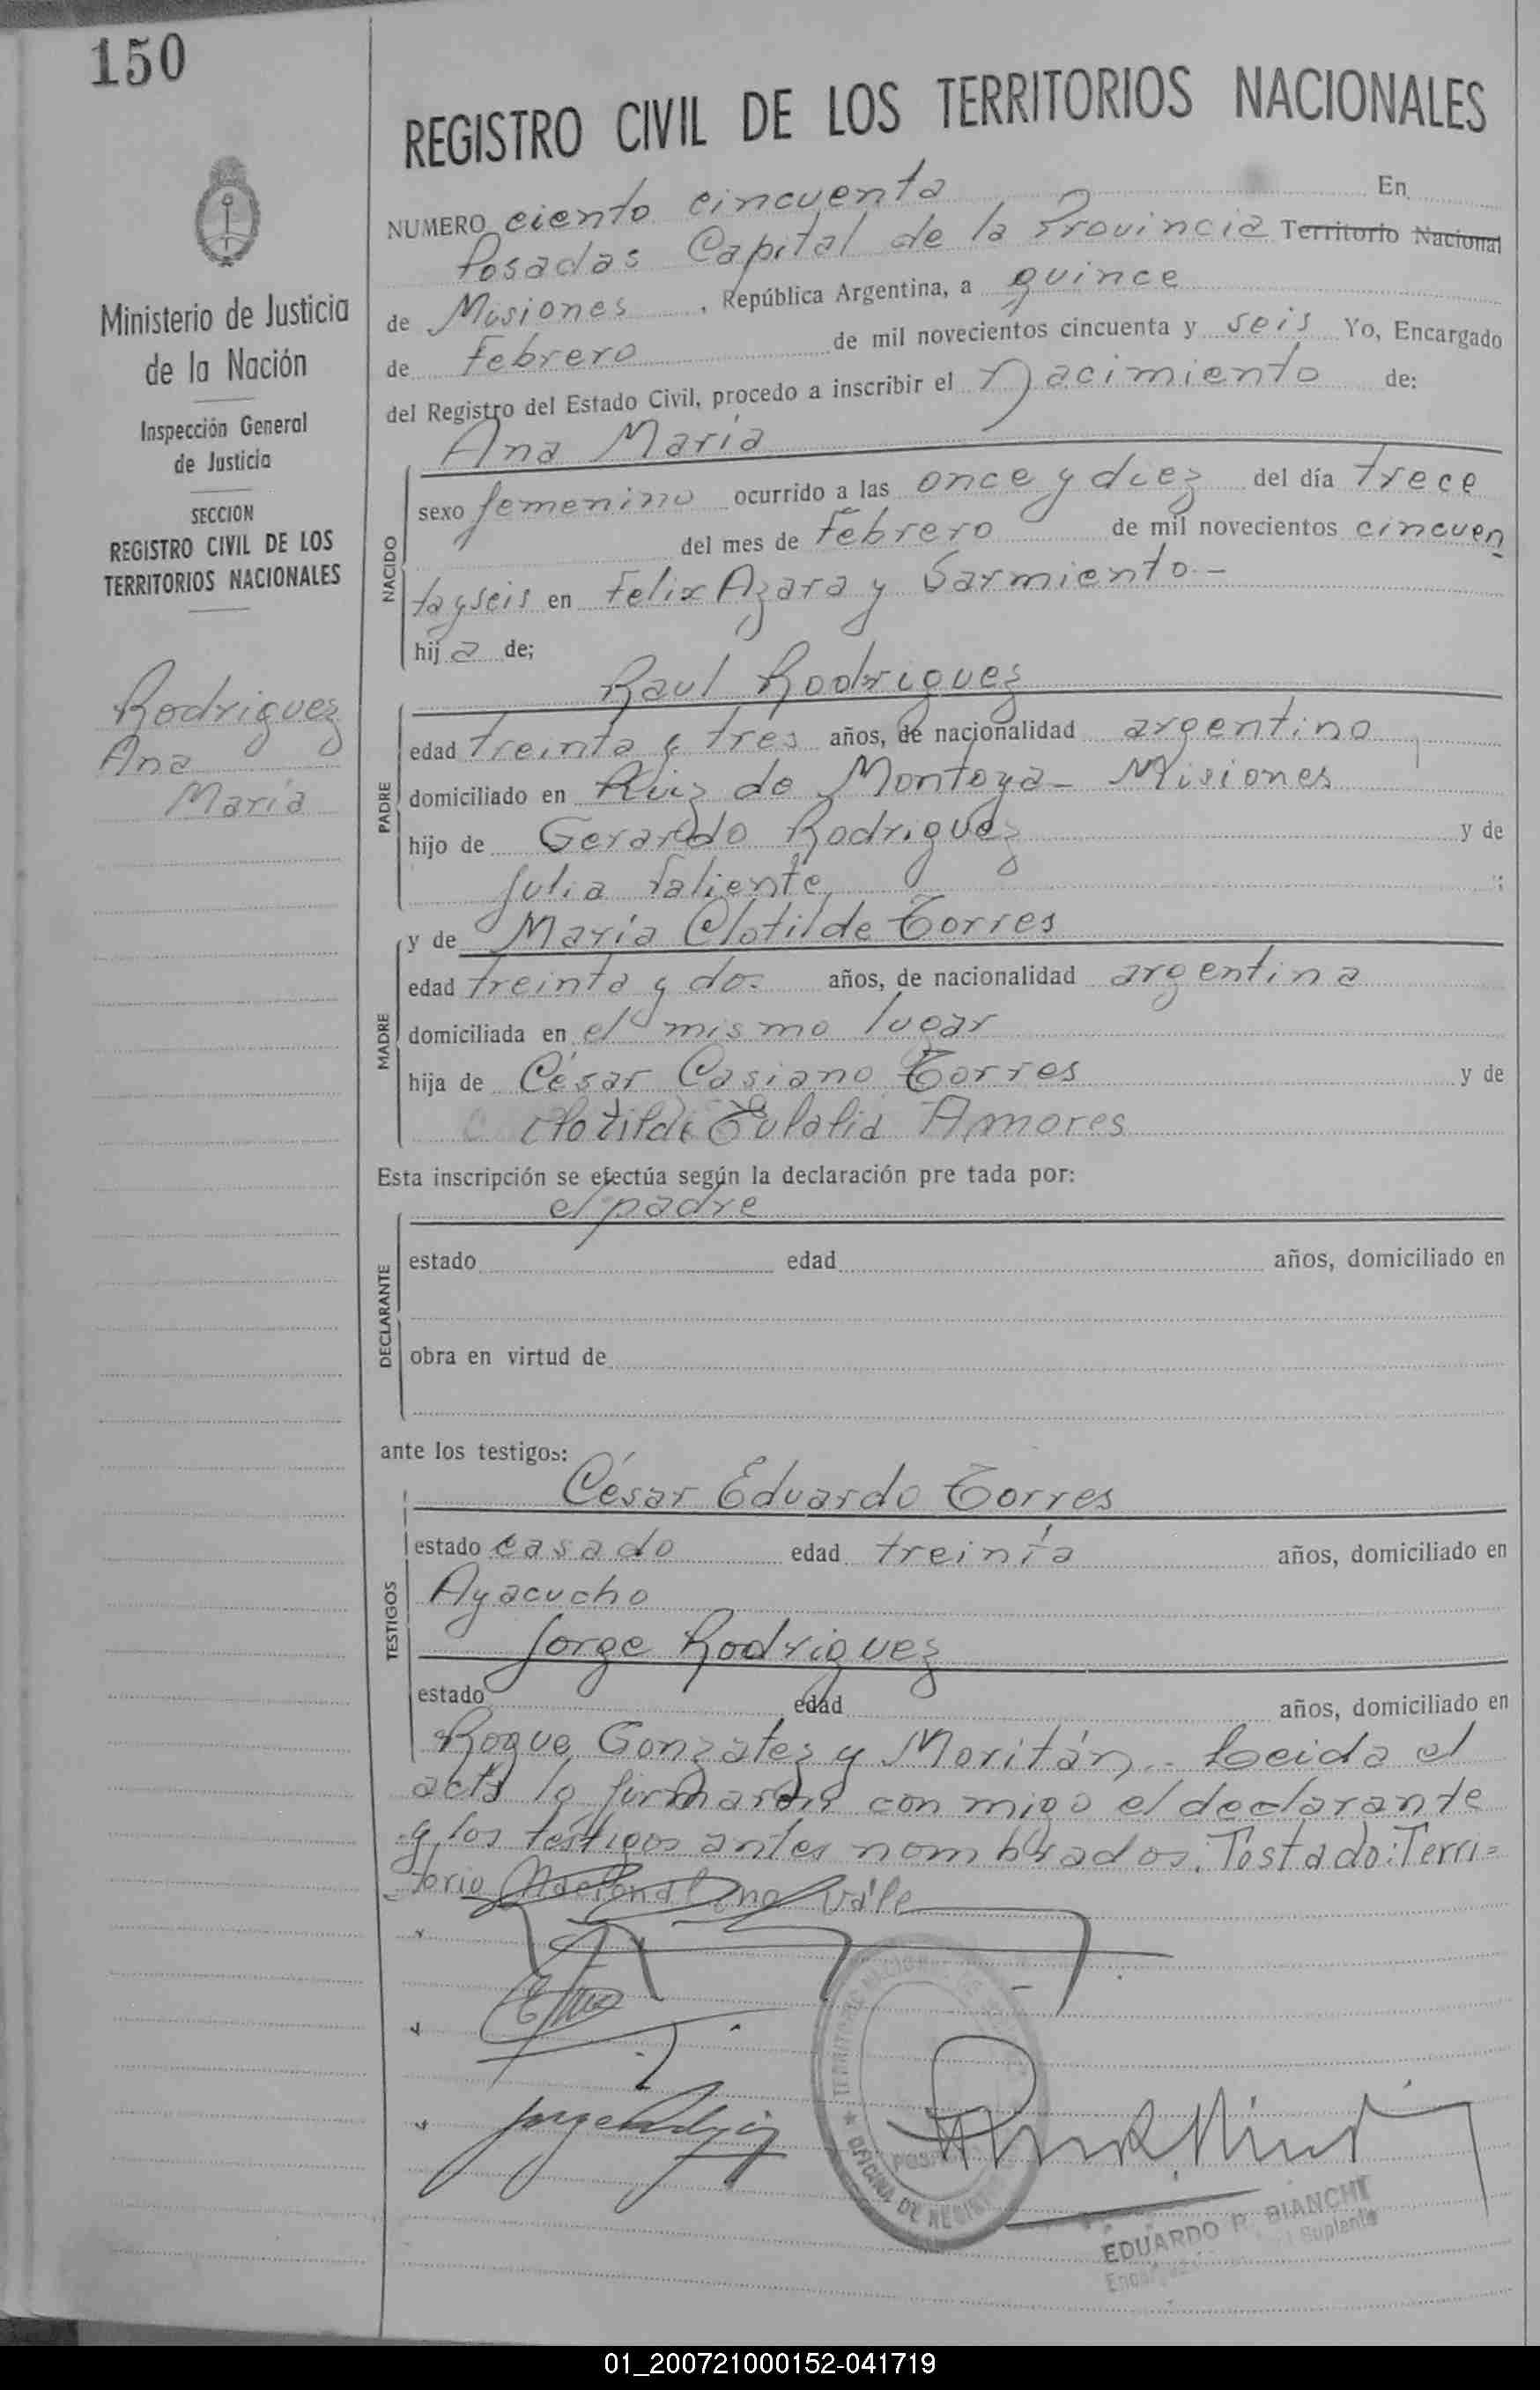 150
REGISTRO CIVIL DE LOS TERRITORIOS NACIONALES
NUMERO ciento cincuenta En
Posadas Capital de la Provincia Territorio Nacional
de Misiones, República Argentina, a quince
de Febrero de mil novecientos cincuenta y seis Yo, Encargado
del Registro del Estado Civil, procedo a inscribir el Nacimiento de:
Ana María
sexo femenino ocurrido a las once y diez del día trece
del mes de Febrero de mil novecientos cincuen
tayseis en Felix Azara y Sarmiento.-
hija de;
NACIDO
Raul Rodriguez
edad treinta y tres años, de nacionalidad argentino
domiciliado en Ruiz de Montoya - Misiones
hijo de Gerardo Rodriguez y de
Julia Valiente;
PADRE
y de María Clotilde Torres
edad treinta y dos años, de nacionalidad argentina
domiciliada en el mismo lugar
hija de César Casiano Torres y de
Clotilde Eulalia Amores
MADRE
Esta inscripción se efectúa según la declaración pre tada por:
el padre
estado edad años, domiciliado en
obra en virtud de
DECLARANTE
ante los testigos:
César Eduardo Torres
estado casado edad treinta años, domiciliado en
Ayacucho
Jorge Rodriguez
estado edad años, domiciliado en
TESTIGOS
Roque Gonzalez y Moritán.- Leida el
acta la firmaron con migo el declarante
y los testigos antes nombrados. Testado: Terri=
torio Nacional no vale
TERRITORIO NACIONAL
OFICINA DE REGISTRO
POSADAS
EDUARDO R. BIANCHI
Encargado Suplente
Ministerio de Justicia
de la Nación
Inspección General
de Justicia
SECCION
REGISTRO CIVIL DE LOS
TERRITORIOS NACIONALES
Rodriguez
Ana
María
01_200721000152-041719